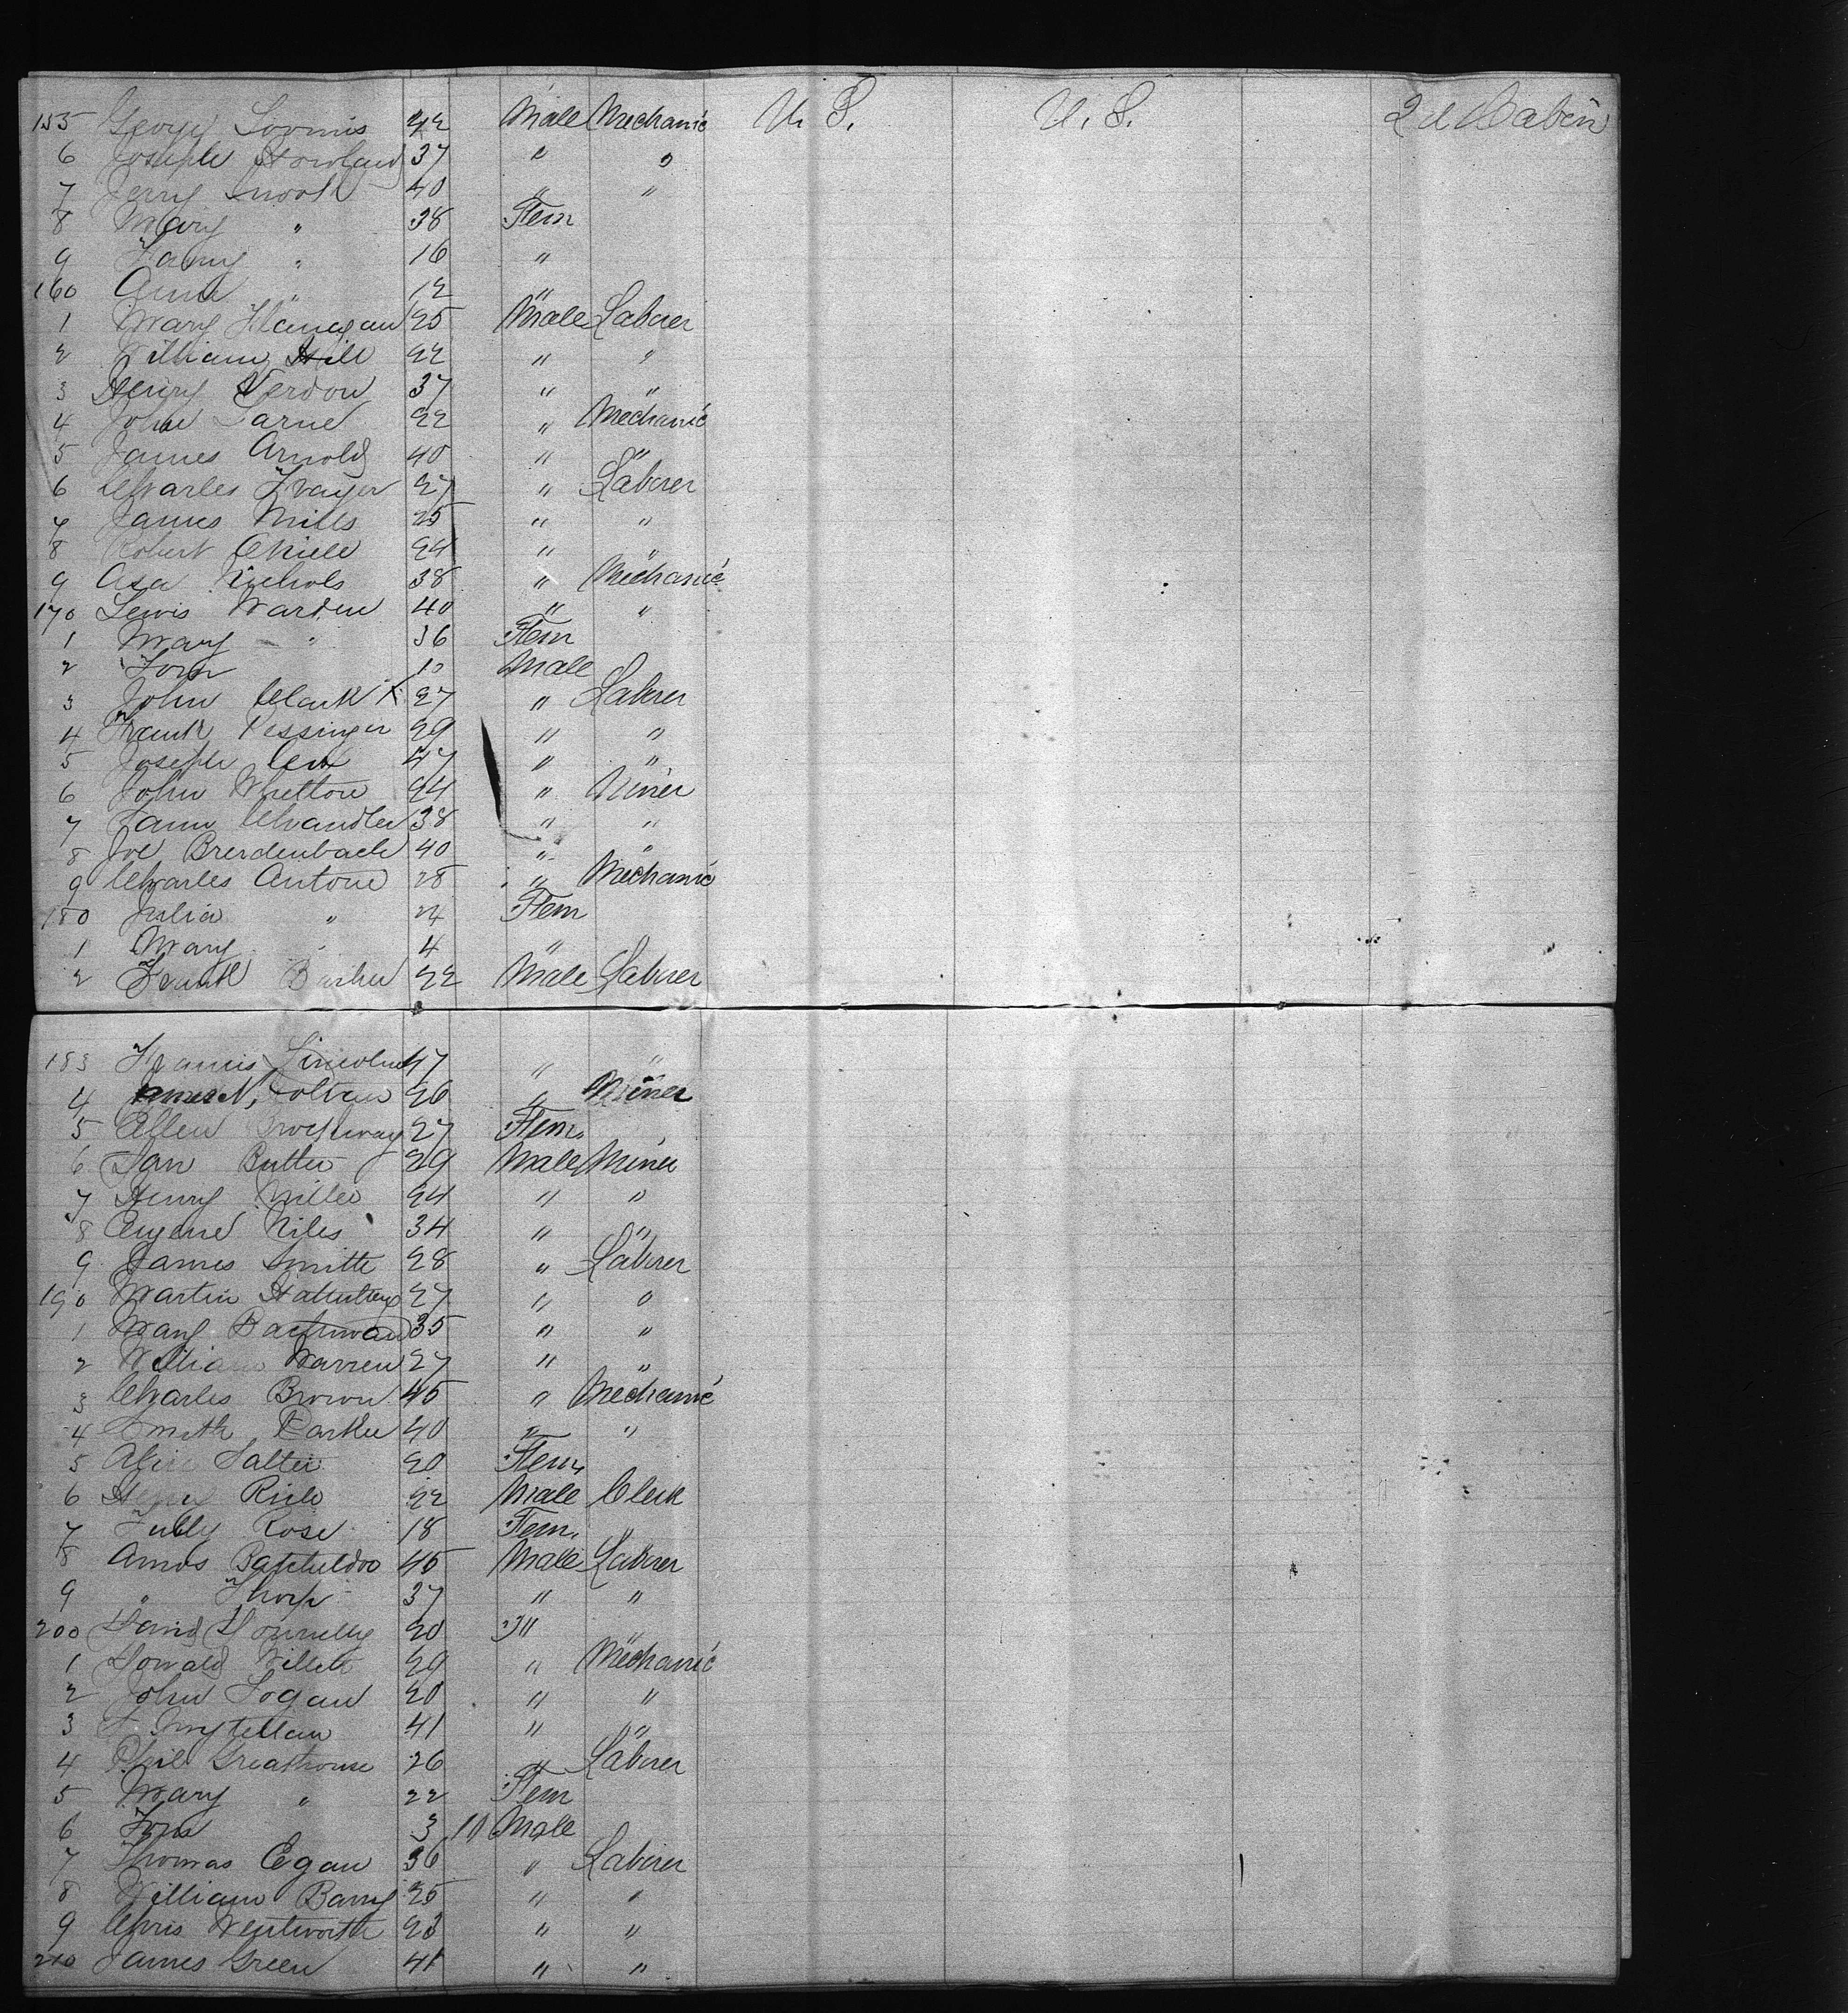 155 George Loomis 42 Male Mechanic U. S. U. S. 2d Cabin
6 Joseph Howland 37 " "
7 Jerry Snook 40 " "
8 Mary " 38 Fem
9 Fanny " 16 "
160 Anna " 12 "
1 Mary Flanegan 25 Male Laborer
2 William Hill 22 " "
3 Henry Verdon 37 " "
4 John Larne 22 " Mechanic
5 James Arnold 40 " "
6 Charles 27 " Laborer
7 James Mills 25 " "
8 Robert 24 " "
9 Asa Nichols 38 " Mechanic
170 Lewis Warden 40 " "
1 Mary " 36 Fem
2 Tom 10 Male
3 John Clark X 27 " Laborer
4 Frank Kessinger 29 " "
5 Joseph Cox 47 " "
6 John Whetton 24 " Miner
7 Sam Chandler 38 " "
8 Joe Breidenbach 40 " "
9 Charles Antone 28 " Mechanic
180 Julia " 24 Fem
1 Mary " 4 "
2 Frank Barker 22 Male Laborer
183 Francis Lincoln 47 " "
4 26 " Miner
5 Ellen Brockway 27 Fem.
6 Dan Butler 29 Male Miner
7 Henry Miller 24 " "
8 Eugene Niles 34 " "
9 James Smith 28 " Laborer
190 Martin 27 " "
1 Mary Bachman 35 " "
2 William Warren 27 " "
3 Charles Brown 45 " Mechanic
4 Smith Parker 40 " "
5 Alice Salter 20 Fem.
6 Henry Rice 22 Male Clerk
7 Tully Rose 18 Fem.
8 Amos Batcheldor 45 Male Laborer
9 " Thorp 37 " "
200 David Donnelly 20 " "
1 Howard Willett 29 " Mechanic
2 John Logan 20 " "
3 41 " "
4 Phil Greathouse 26 " Laborer
5 Mary " 22 Fem
6 Tom 3 10 Male
7 Thomas Egan 36 " Laborer
8 William Barry 25 " "
9 Chris Wentworth 23 " "
210 James Green 41 " "